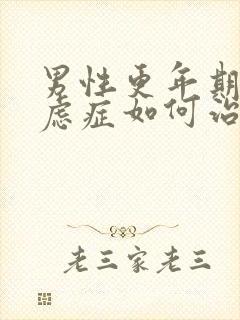 男性更年期
虑症如何治
老三家老三